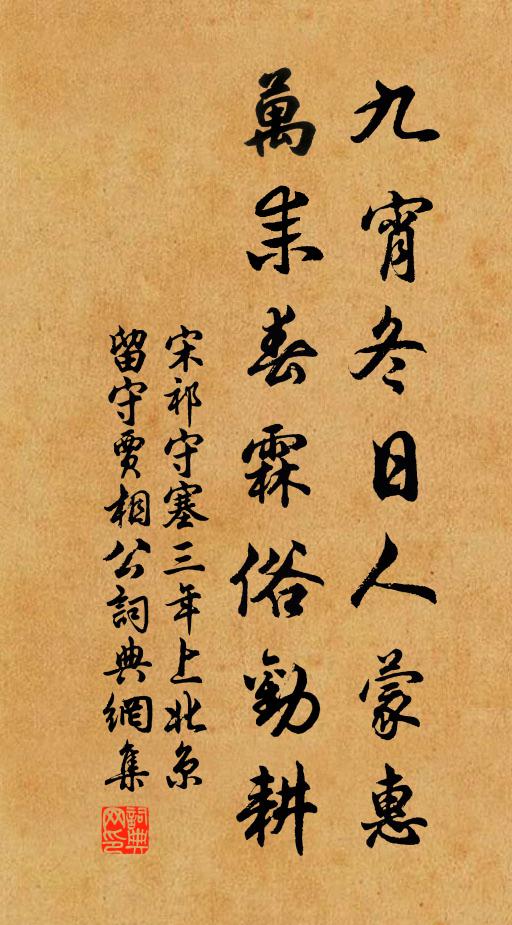 九霄冬日人蒙惠
萬耒春霖俗勸耕
宋祁守塞三年上北京
留守賈相公詞典網集
詞典网印